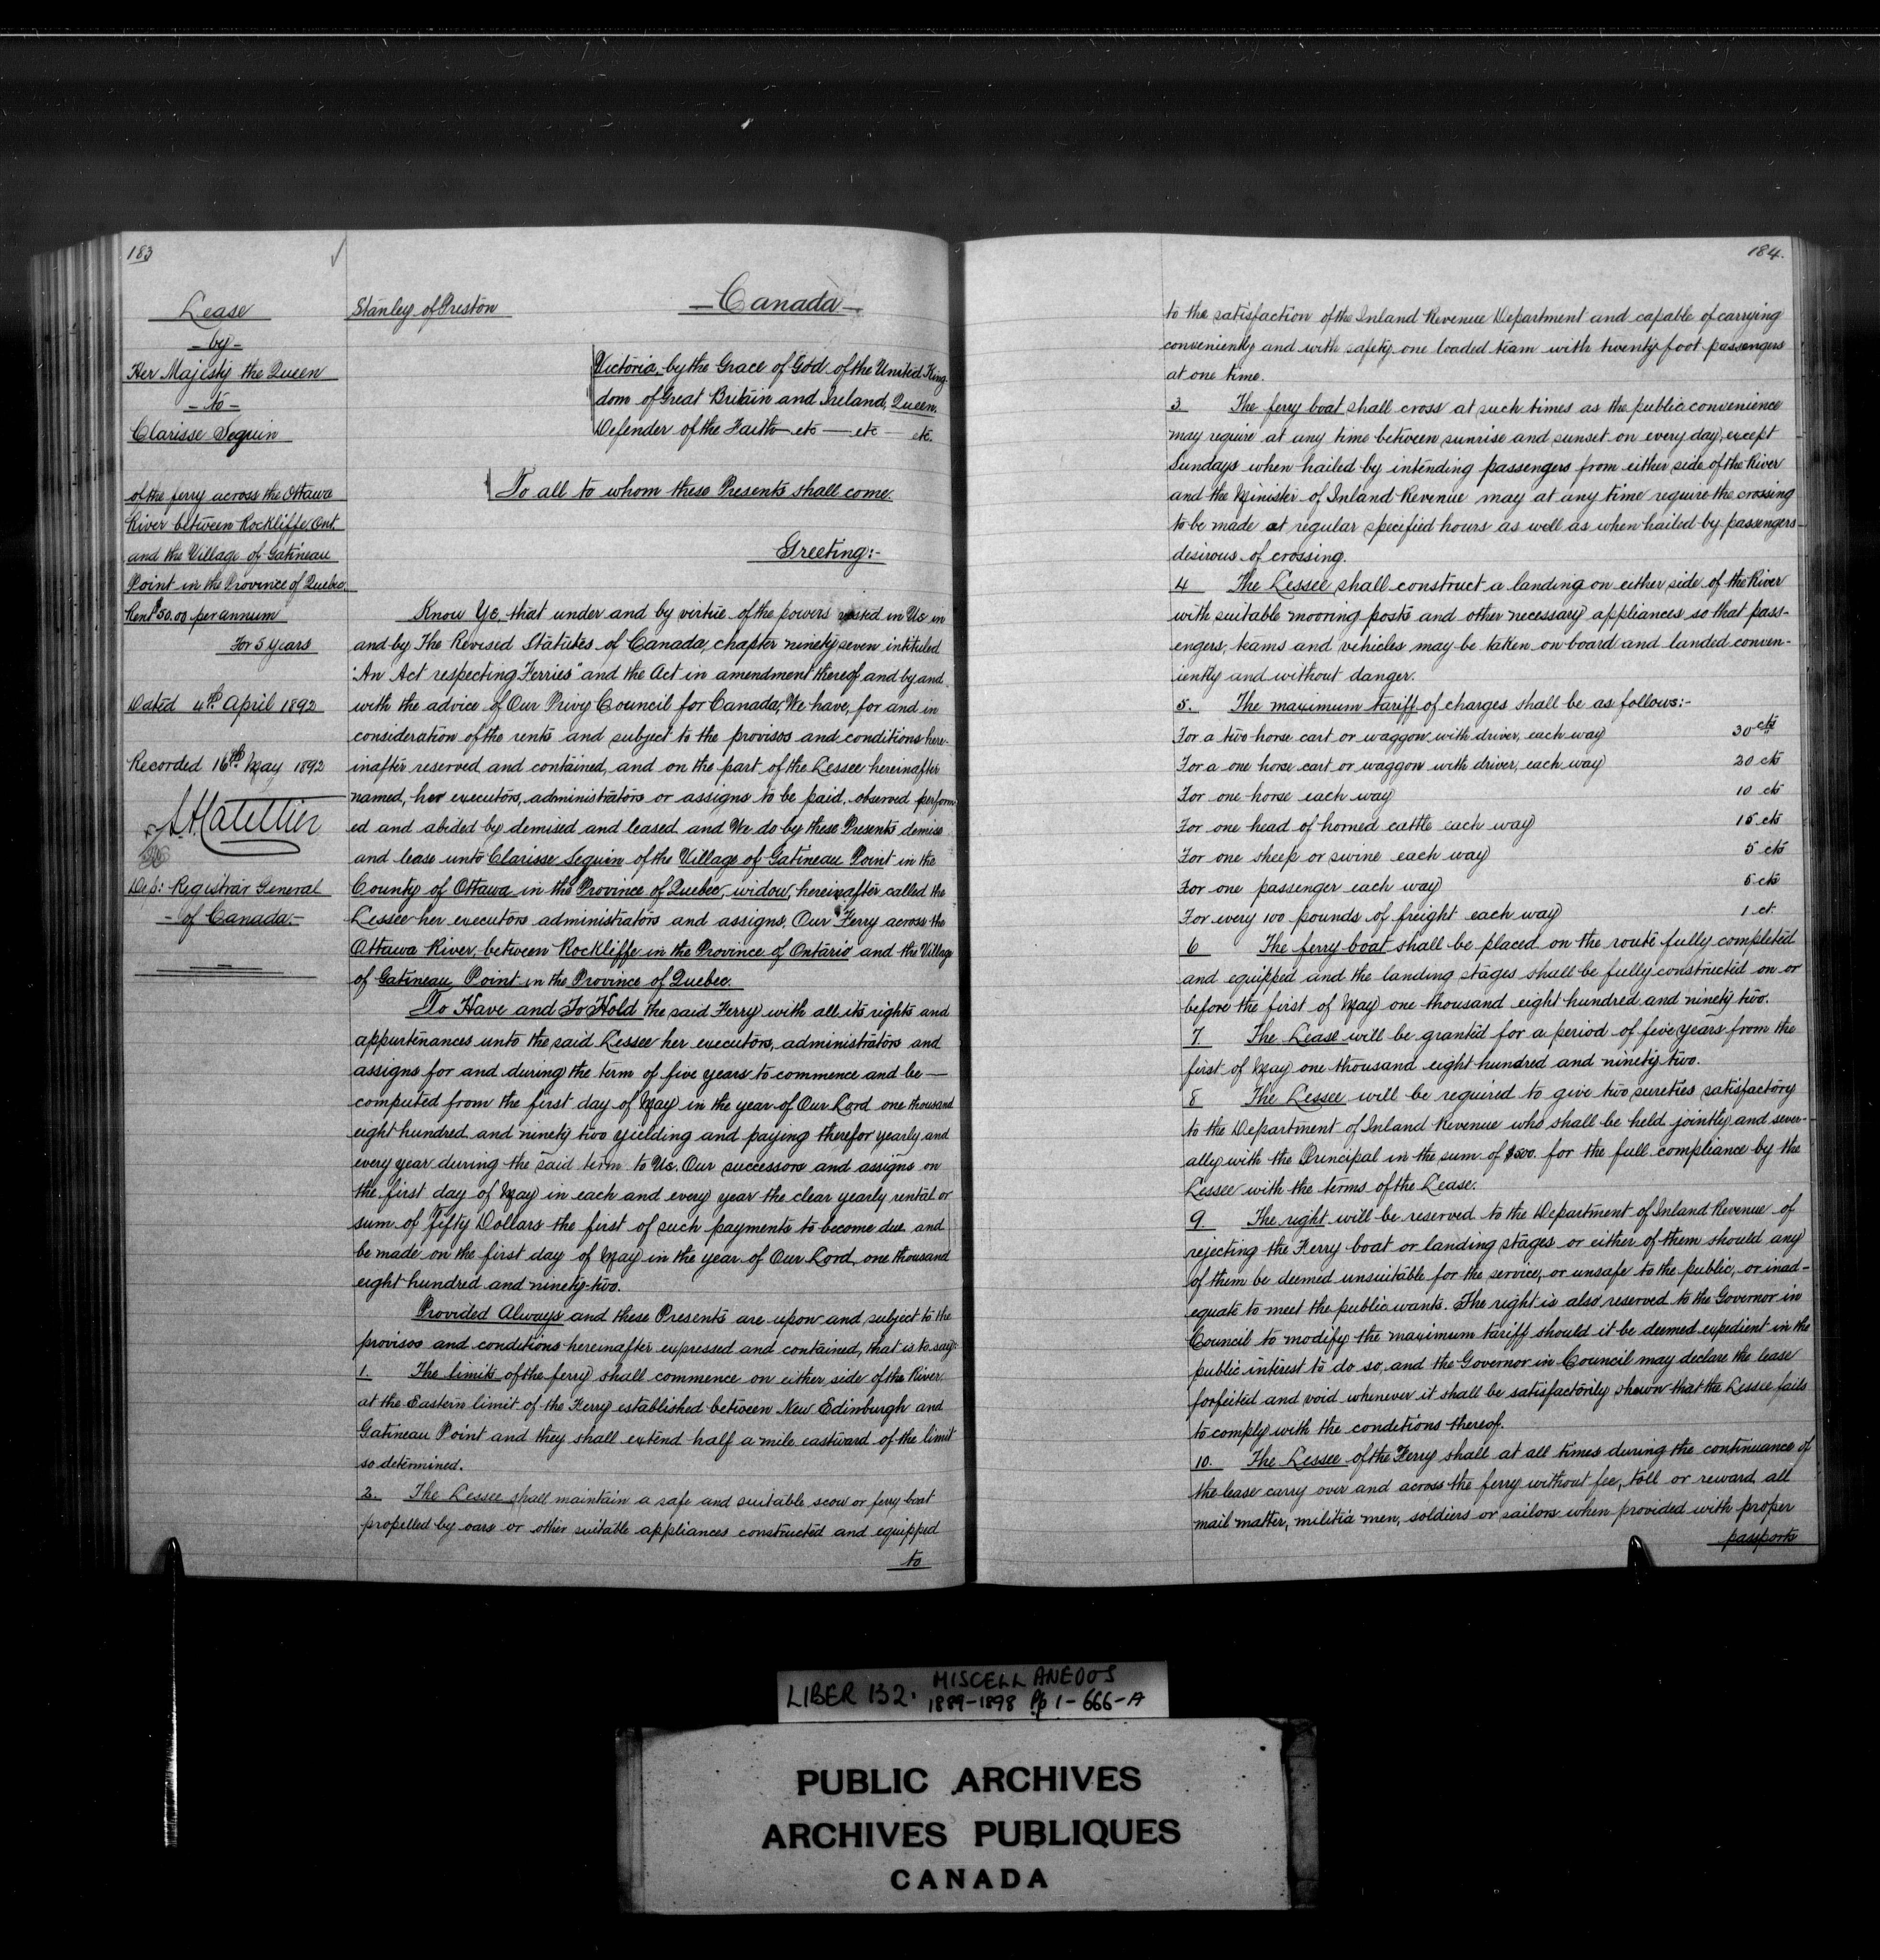 183
Lease
- by -
Her Majesty the Queen
- to -
Clarisse Seguin
of the ferry across the Ottawa
River between Rockliffe, Ont.
and the Village of Gatineau
Point in the Province of Quebec.
Rent $50.00 per annum
For 5 years
Dated 4th April 1892
Recorded 16th May 1892
Dep: Registrar General
- of Canada. -
Stanley of Preston
- Canada -
Victoria, by the Grace of God of the United King
dom of Great Britain and Ireland, Queen,
Defender of the Faith etc — etc — etc.
To all to whom these Presents shall come.
Greeting:-
Know Ye, that under and by virtue of the powers vested in Us in
and by The Revised Statutes of Canada, chapter ninety seven intituled
"An Act respecting Ferries" and the Act in amendment thereof and by and
with the advice of Our Privy Council for Canada, We have, for and in
consideration of the rents and subject to the provisos and conditions here-
inafter reserved and contained, and on the part of the Lessee hereinafter
named, her executors, administrators or assigns to be paid, observed perform-
ed and abided by demised and leased and We do by these Presents demise
and lease unto Clarisse Seguin of the Village of Gatineau Point in the
County of Ottawa in the Province of Quebec, widow, hereinafter called the
Lessee her executors administrators and assigns, Our Ferry across the
Ottawa River, between Rockliffe in the Province of Ontario and the Village
of Gatineau Point in the Province of Quebec.
To Have and To Hold the said Ferry with all its rights and
appurtenances unto the said Lessee her executors, administrators and
assigns for and during the term of five years to commence and be —
computed from the first day of May in the year of Our Lord one thousand
eight hundred and ninety two yielding and paying therefor yearly and
every year during the said term to Us, Our successors and assigns on
the first day of May in each and every year the clear yearly rental or
sum of fifty Dollars the first of such payments to become due and
be made on the first day of May in the year of Our Lord, one thousand
eight hundred and ninety-two.
Provided Always and these Presents are upon and subject to the
provisos and conditions hereinafter expressed and contained, that is to say:
1. The limits of the ferry shall commence on either side of the River
at the Eastern limit of the Ferry established between New Edinburgh and
Gatineau Point and they shall extend half a mile eastward of the limit
so determined.
2. The Lessee shall maintain a safe and suitable scow or ferry boat
propelled by oars or other suitable appliances constructed and equipped
to
184.
to the satisfaction of the Inland Revenue Department and capable of carrying
conveniently and with safety one loaded team with twenty foot passengers
at one time.
3 The ferry boat shall cross at such times as the public convenience
may require at any time between sunrise and sunset on every day, except
Sundays when hailed by intending passengers from either side of the River
and the Minister of Inland Revenue may at any time require the crossing
to be made at regular specified hours as well as when hailed by passengers
desirous of crossing.
4 The Lessee shall construct a landing on either side of the River
with suitable mooring posts and other necessary appliances so that pass-
engers, teams and vehicles may be taken on board and landed conven-
iently and without danger.
5. The maximum tariff of charges shall be as follows:-
For a two horse cart or waggon with driver, each way 30 cts
For a one horse cart or waggon with driver, each way 20 cts
For one horse each way 10 cts
For one head of horned cattle each way 15 cts
For one sheep or swine each way 5 cts
For one passenger each way 5 cts
For every 100 pounds of freight each way 1 ct.
6 The ferry boat shall be placed on the route fully completed
and equipped and the landing stages shall be fully constructed on or
before the first of May one thousand eight hundred and ninety two.
7. The Lease will be granted for a period of five years from the
first of May one thousand eight hundred and ninety two.
8 The Lessee will be required to give two sureties satisfactory
to the Department of Inland Revenue who shall be held jointly and sever-
ally with the Principal in the sum of $500. for the full compliance by the
Lessee with the terms of the Lease.
9. The right will be reserved to the Department of Inland Revenue of
rejecting the Ferry boat or landing stages or either of them should any
of them be deemed unsuitable for the service, or unsafe to the public, or inad-
equate to meet the public wants. The right is also reserved to the Governor in
Council to modify the maximum tariff should it be deemed expedient in the
public interest to do so, and the Governor in Council may declare the lease
forfeited and void whenever it shall be satisfactorily shewn that the Lessee fails
to comply with the conditions thereof.
10. The Lessee of the Ferry shall at all times during the continuance of
the lease carry over and across the ferry without fee, toll or reward all
mail matter, militia men, soldiers or sailors when provided with proper
passports
LIBER 132. MISCELLANEOUS
1889-1898 Pp 1-666-A
PUBLIC ARCHIVES
ARCHIVES PUBLIQUES
CANADA